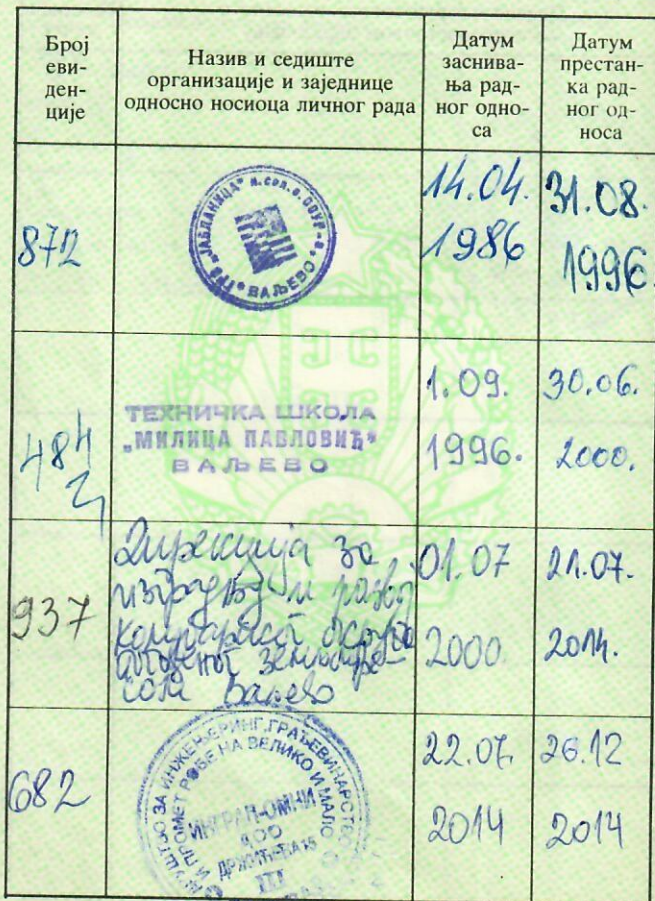 Број
еви-
ден-
ције
Назив и седиште
организације и заједнице
односно носиоца личног рада
Датум
заснива-
ња рад-
ног одно-
са
Датум
престан-
ка рад-
ног од-
носа
872
"ЈАБЛАНИЦА"
ВАЉЕВО
14.04.
1986
31.08.
1996.
484
ТЕХНИЧКА ШКОЛА
„МИЛИЦА ПАВЛОВИЋ“
ВАЉЕВО
1.09.
1996.
30.06.
2000.
937
Дирекција за
изградњу и развој
Ваљево
01.07
2000.
21.07.
2014.
682
ЗА ИНЖЕЊЕРИНГ, ГРАЂЕВИНАРСТВО
И ПРОМЕТ РОБЕ НА ВЕЛИКО И МАЛО
ИНГРАП-ОМНИ
ДОО
III
22.07.
2014
26.12
2014